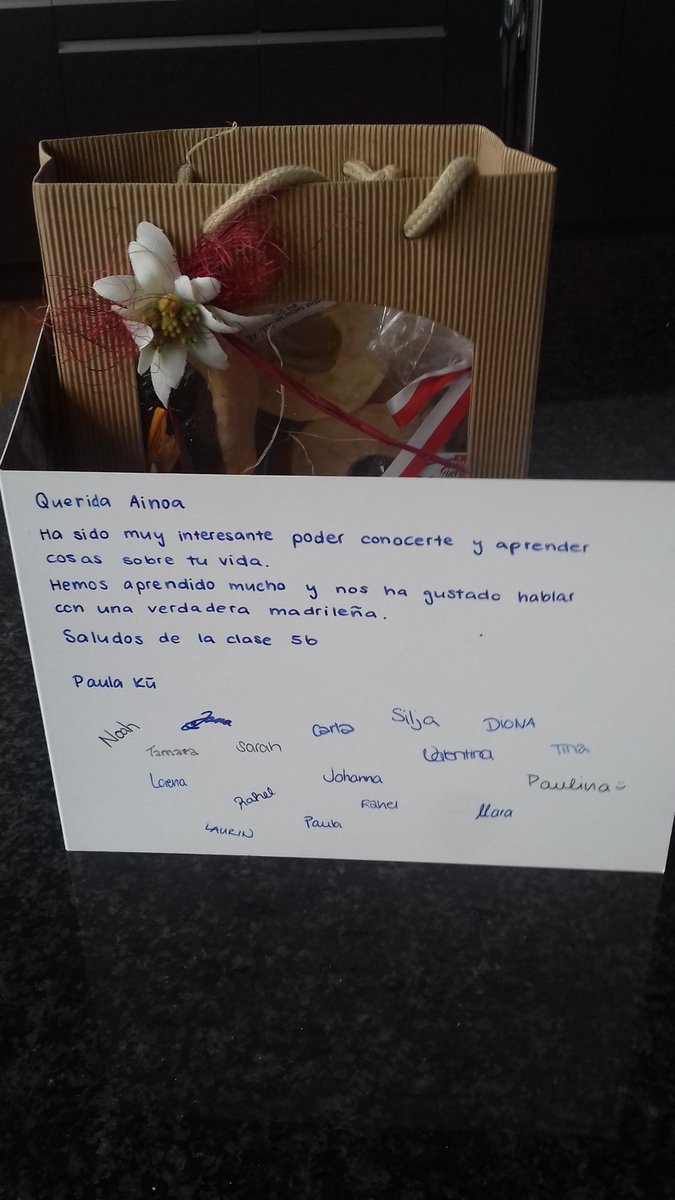 Querida Ainoa
Ha sido muy interesante poder conocerte y aprender
cosas sobre tu vida.
Hemos aprendido mucho y nos ha gustado hablar
con una verdadera madrileña.
Saludos de la clase 5b
Paula Kü
Noah Jana Carla Silja DIONA
Tamara Sarah Valentina Tina
Lorena Johanna Paulina
Rahel Rahel Mara
LAURIN Paula